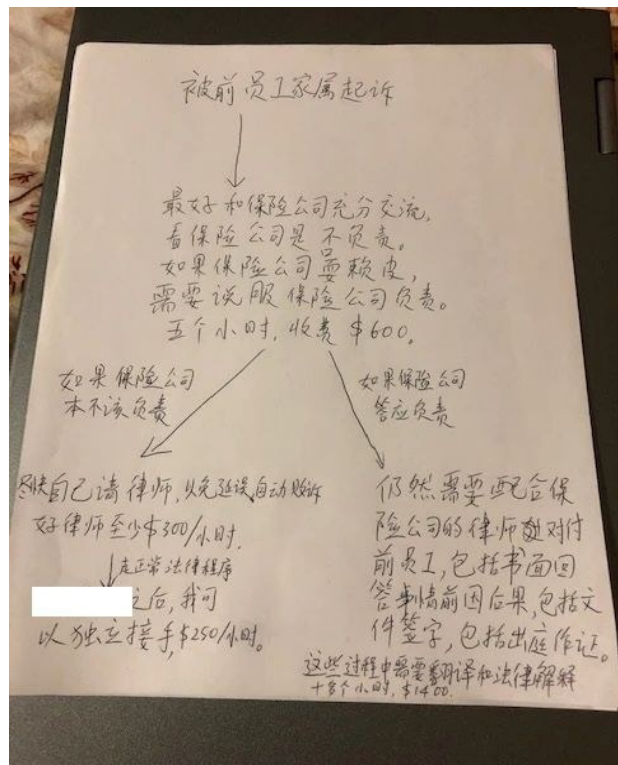 被前员工家属起诉
最好和保险公司充分交流,
看保险公司是不负责。
如果保险公司耍赖皮,
需要说服保险公司负责。
五个小时,收费$600。
如果保险公司
本不该负责
如果保险公司
答应负责
尽快自己请律师,以免延误自动败诉
好律师至少$300/小时.
走正常法律程序
之后,我可
以独立接手,$250/小时。
仍然需要配合保
险公司的律师对付
前员工,包括书面回
答事情前因后果,包括文
件签字,包括出庭作证。
这些过程中需要翻译和法律解释
小时,$1400.